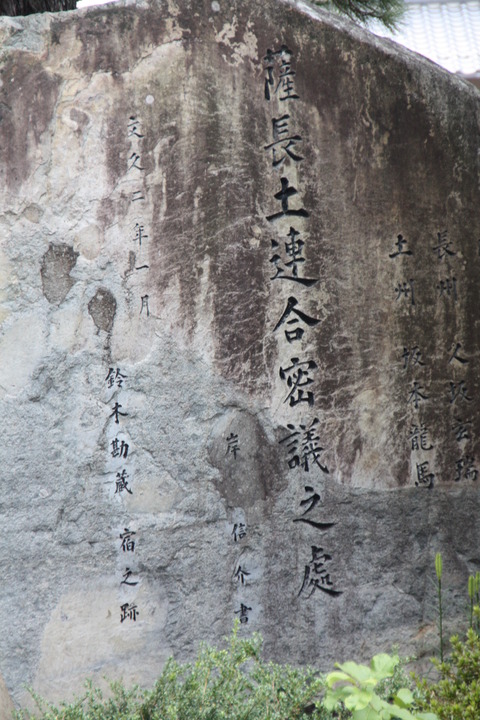 長州 久坂玄瑞
土州 坂本龍馬
薩長土連合密議之處
岸信介書
文久二年一月
鈴木勘蔵 宿之跡